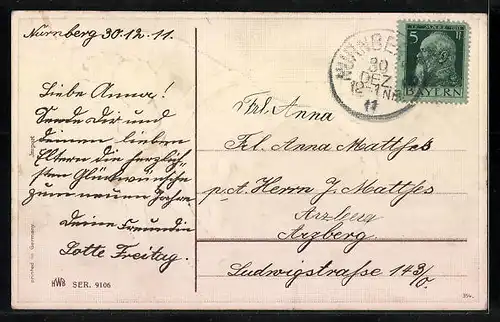 Nürnberg 30.12.11.
Liebe Anna!
Sende Dir und
deinen lieben
Eltern die herzlich-
sten Glückwünsche
zum neuen Jahre.
Deine Freundin
Lotte Freitag.
Printed in Germany.
HWB SER. 9106
NÜRNBE
30
DEZ
12-1 N
11
5
BAYERN
Frl. Anna
Frl. Anna Matthes
p.A. Herrn J. Matthes
Arzberg
Arzberg
Ludwigstrasse 143/0.